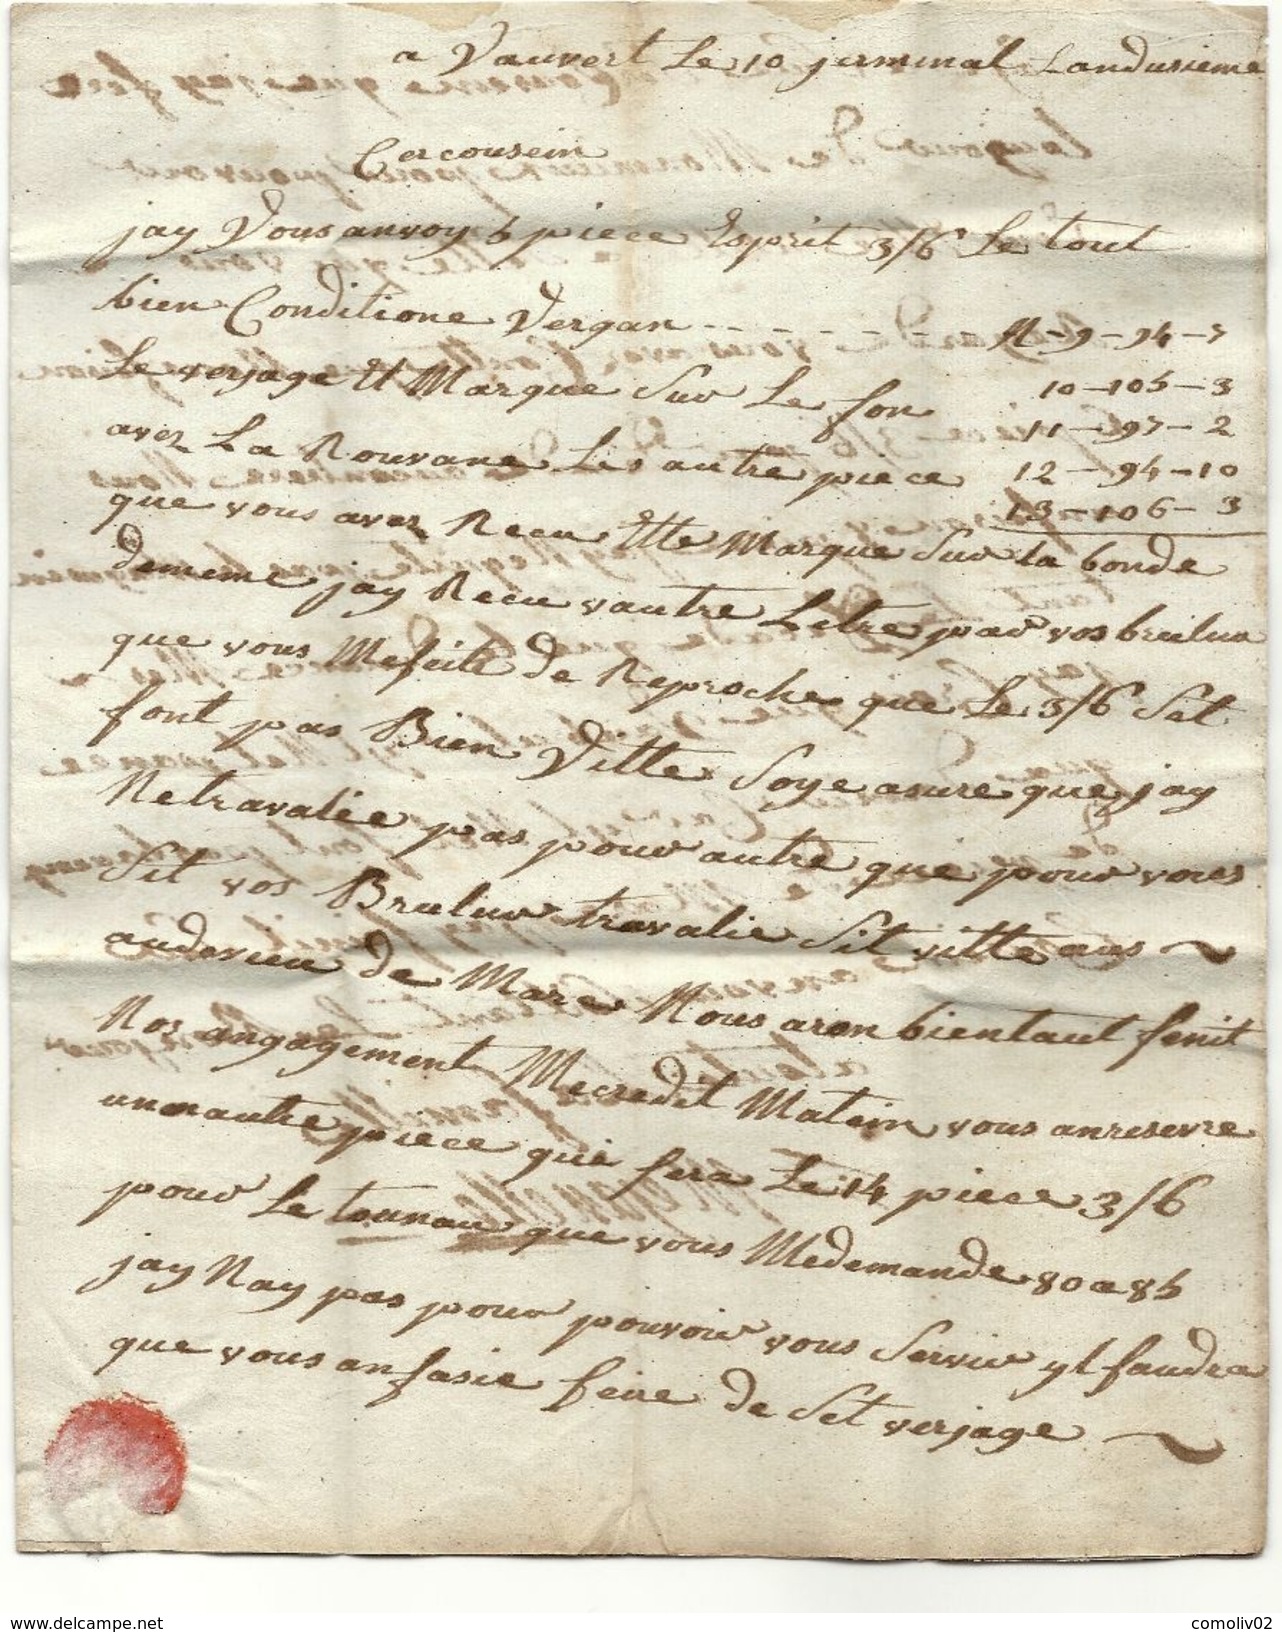 a Vauvert Le 10 jerminal Landusieme
Cercousein
jay Vous anvoy 5 piece Esprit 3/6 Le tout
bien Conditione Vergan - - - - - - - N - 9 - 94 - 7
Le verjage Et Marque Sur Le fon 10 - 105 - 3
avez La Rouvane Les autre piece 11 - 97 - 2
12 - 94 - 10
que vous avez Recu Ette Marque Sur La bonde 13 - 106 - 3
dememe jay Recu vautre Letre par vos brulur
que vous Mefeite de Reproche que Le 3/6 Set
font pas Bien Vitte Soye asure que jay
Netravalie pas pour autre que pour vous
Sit vos Brulur travalie Sit vitte aus ~
audevieu de Mare Nous aron bientaut fenit
Nos angagement Mecredit Matein vous anreserre
unonautre piece qui fera Le 14 piece 3/6
pour Le tounau que vous Medemande 80 a 85
jay Nay pas pour pouvoir vous Servir yl faudra
que vous an fasie feire de Set verjage ~
comoliv02
www.delcampe.net